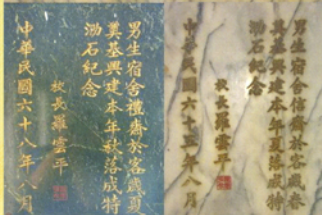 男生宿舍禮齋於客歲夏
奠基興建本年秋落成特
泐石紀念
校長羅雲平
中華民國六十八年八月
男生宿舍信齋於客歲春
奠基興建本年夏落成特
泐石紀念
校長羅雲平
中華民國六十五年八月